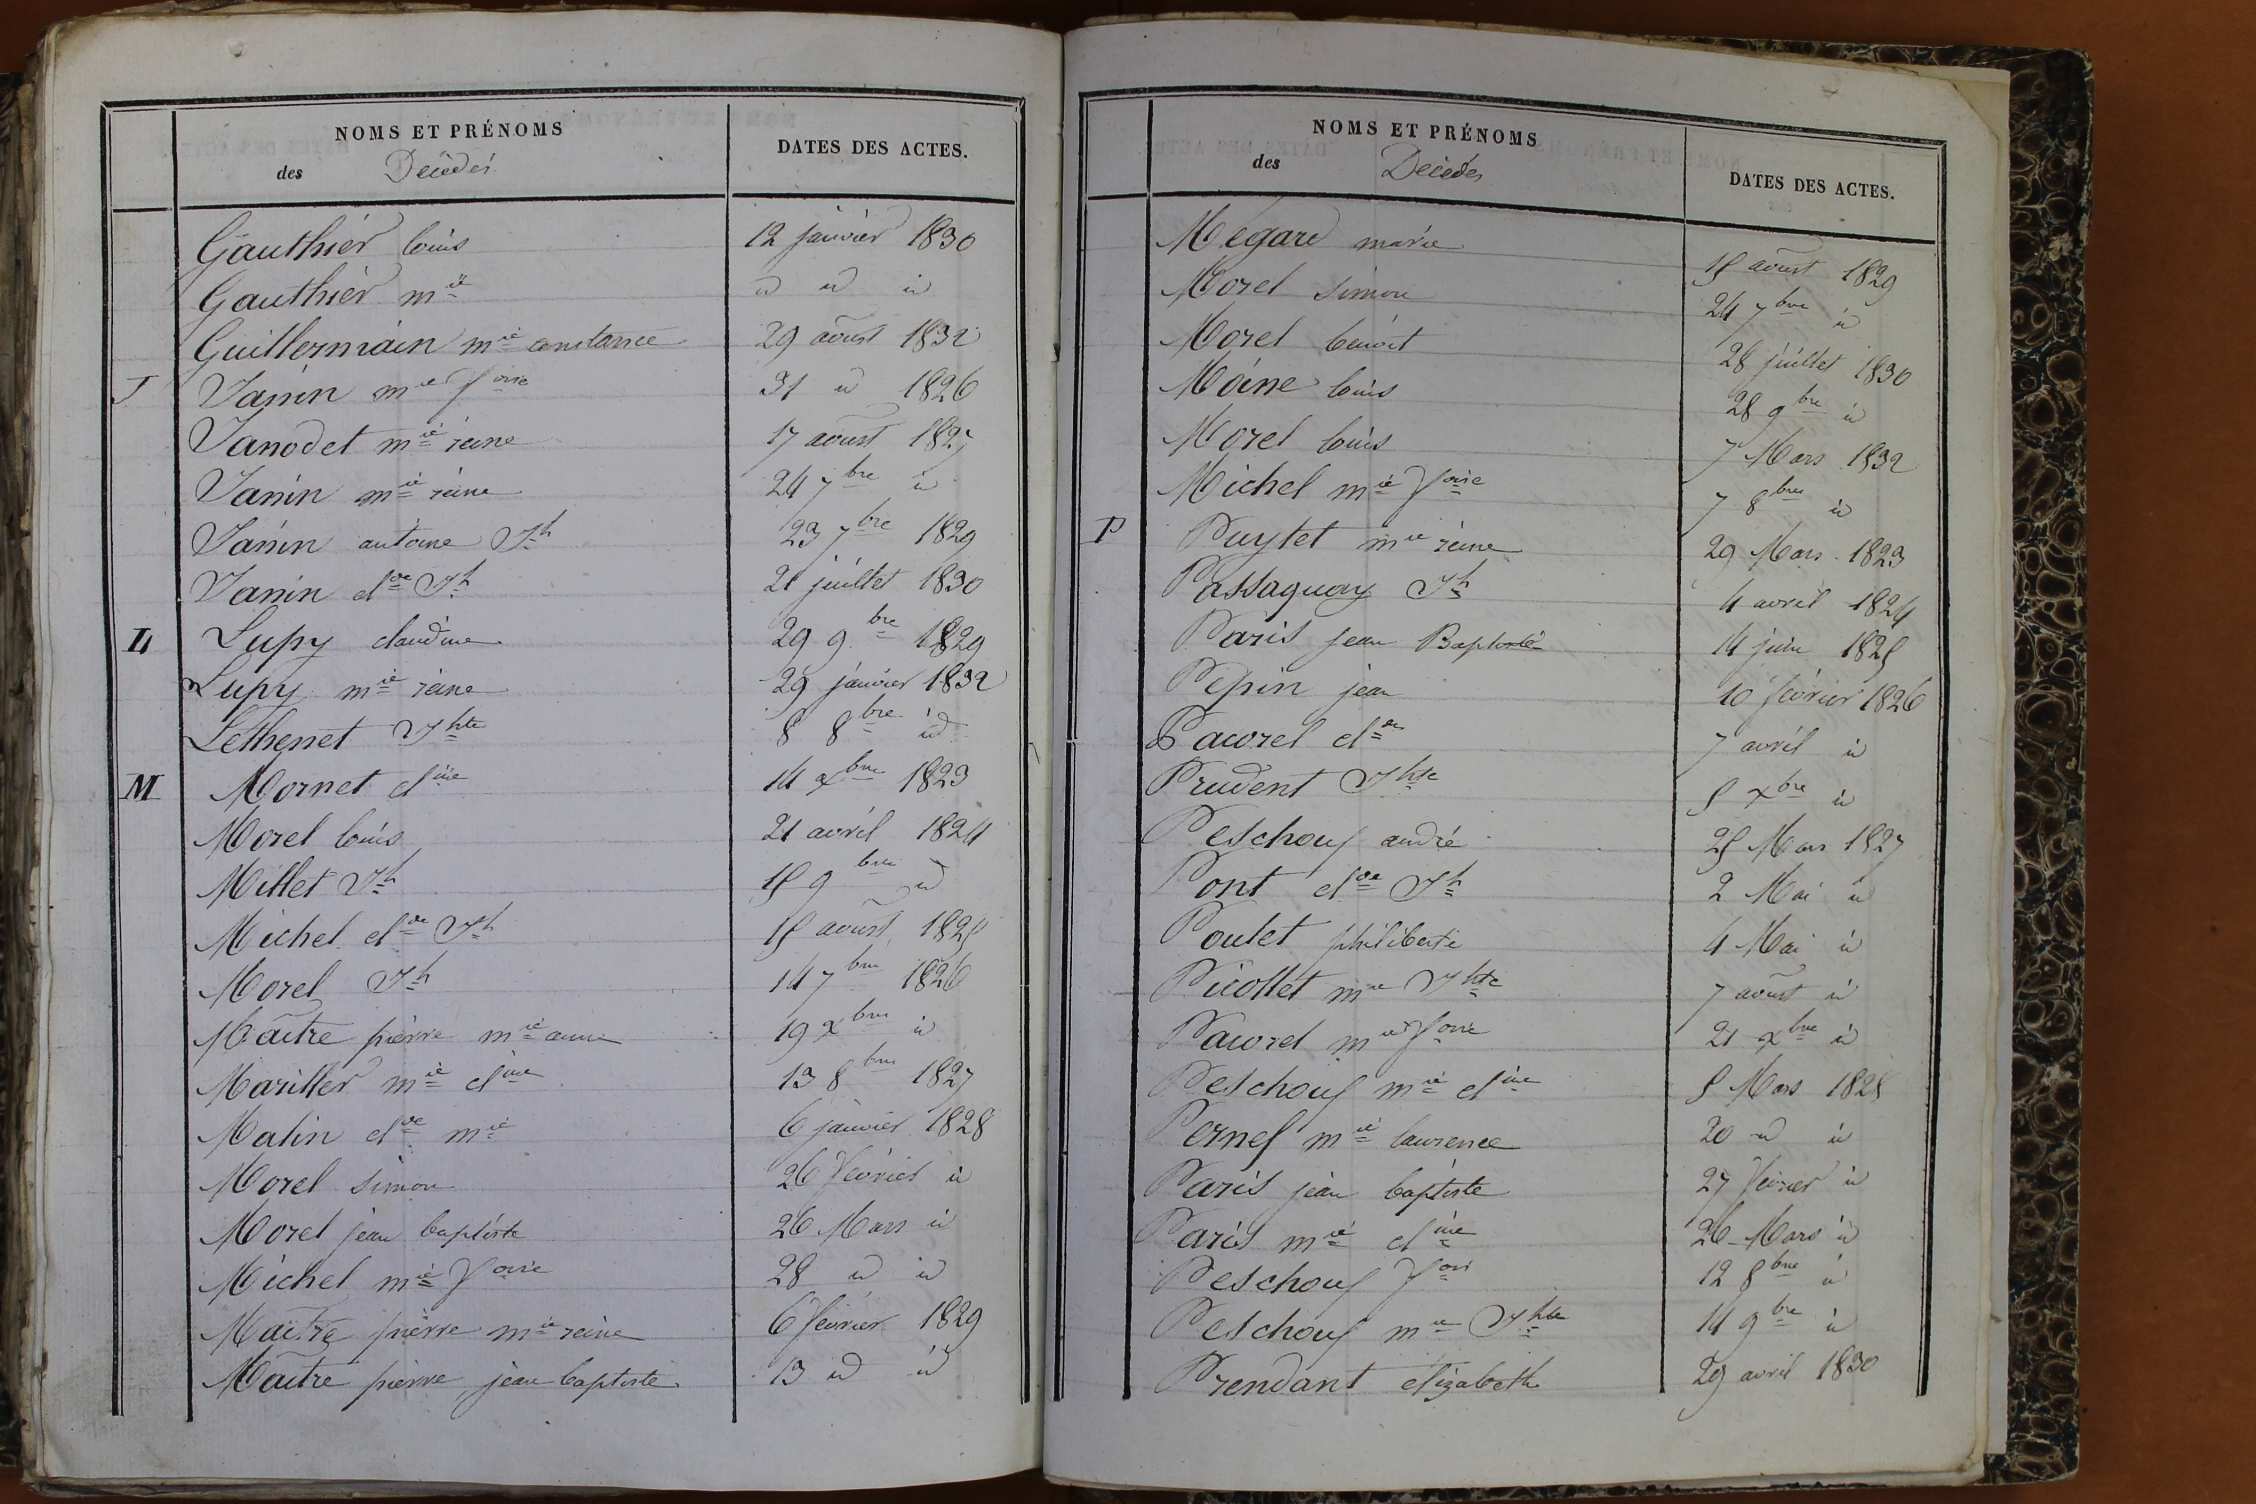 NOMS ET PRÉNOMS
des Décédés
DATES DES ACTES.
Gauthier louis 12 janvier 1830
Gauthier mie id id id
Guillermain mie constance 29 aoust 1832
J Janin mie foise 31 id 1826
Janodet mie reine 17 aoust 1827
Janin mie reine 24 7bre id
Janin antoine Jh 23 7bre 1829
Janin clde Jh 21 juillet 1830
L Lupy claudine 29 9bre 1829
Lupy mie reine 29 janvier 1832
Lethenet Jhte 8 8bre id
M Mornet cline 14 xbre 1823
Morel louis 21 avril 1824
Millet Jh 15 9bre id
Michel clde Jh 15 aoust 1825
Morel Jh 14 7bre 1826
Maitre pierre mie anne 19 xbre id
Mariller mie cline 13 8bre 1827
Malin clde mie 6 janvier 1828
Morel simon 26 février id
Morel jean baptiste 26 Mars id
Michel mie foise 28 id id
Maitre pierre mie reine 6 février 1829
Maitre pierre jean baptiste 13 id id
NOMS ET PRÉNOMS
des Décédés
DATES DES ACTES.
Megard marie 15 aoust 1829
Morel simon 24 7bre id
Morel benoit 28 juillet 1830
Moine louis 28 9bre id
Morel louis 7 Mars 1832
Michel mie foise 7 8bre id
P Puytet mie reine 29 Mars 1823
Passaquay Jh 4 avril 1824
Paris jean Baptiste 14 juin 1825
Pepin jean 10 février 1826
Pacorel clde 7 avril id
Prudent Jhte 5 xbre id
Peschouf andré 25 Mars 1827
Pont clde Jh 2 Mai id
Poulet philiberte 4 Mai id
Picollet mie Jhte 7 aoust id
Pacorel mie foise 21 xbre id
Peschouf mie cline 5 Mars 1828
Pernef mie laurence 20 id id
Paris jean baptiste 27 février id
Paris mie cline 26 Mars id
Peschouf fois 12 8bre id
Peschouf mie Jhte 14 9bre id
Prendant élizabeth 29 avril 1830